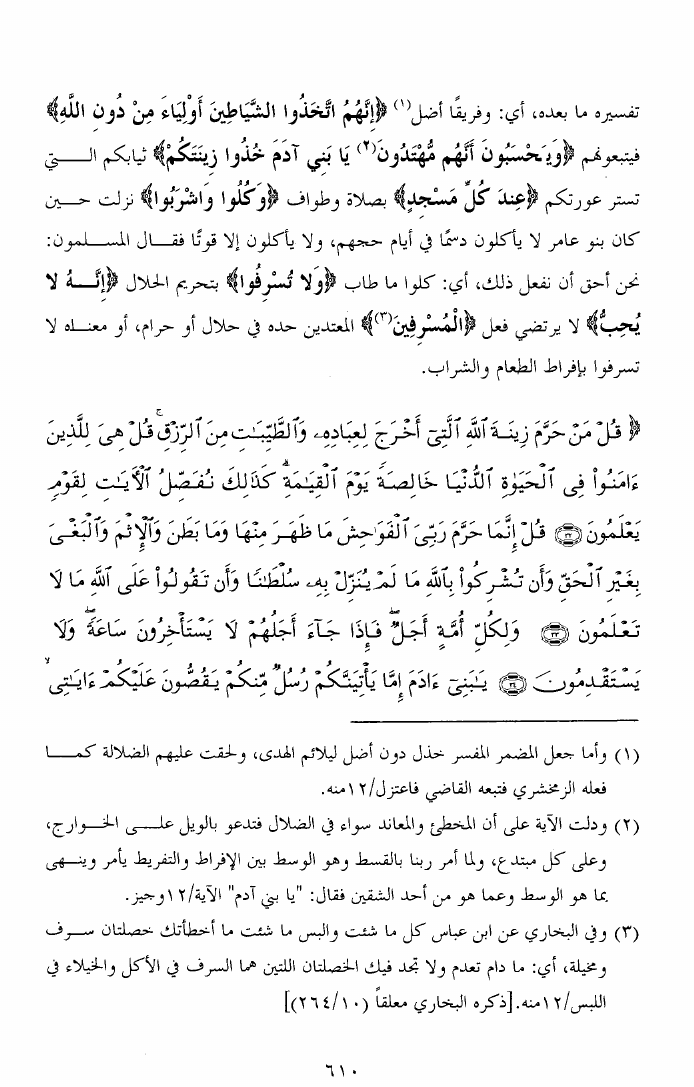 تفسيره ما بعده، أي: وفريقًا أضل(١) ﴿إِنَّهُمُ اتَّخَذُوا الشَّيَاطِينَ أَوْلِيَاءَ مِنْ دُونِ اللَّهِ﴾
فيتبعونهم ﴿وَيَحْسَبُونَ أَنَّهُم مُّهْتَدُونَ(٢) يَا بَنِي آدَمَ خُذُوا زِينَتَكُمْ﴾ ثيابكم الـــــتي
تستر عورتكم ﴿عِندَ كُلِّ مَسْجِدٍ﴾ بصلاة وطواف ﴿وَكُلُوا وَاشْرَبُوا﴾ نزلت حـــين
كان بنو عامر لا يأكلون دسمًا في أيام حجهم، ولا يأكلون إلا قوتًا فقـــال المســـلمون:
نحن أحق أن نفعل ذلك، أي: كلوا ما طاب ﴿وَلا تُسْرِفُوا﴾ بتحريم الحلال ﴿إِنَّـــهُ لا
يُحِبُّ﴾ لا يرتضي فعل ﴿الْمُسْرِفِينَ(٣)﴾ المعتدين حده في حلال أو حرام، أو معنـــاه لا
تسرفوا بإفراط الطعام والشراب.
﴿ قُلْ مَنْ حَرَّمَ زِينَةَ ٱللَّهِ ٱلَّتِىٓ أَخْرَجَ لِعِبَادِهِۦ وَٱلطَّيِّبَـٰتِ مِنَ ٱلرِّزْقِ ۚ قُلْ هِىَ لِلَّذِينَ
ءَامَنُوا۟ فِى ٱلْحَيَوٰةِ ٱلدُّنْيَا خَالِصَةً يَوْمَ ٱلْقِيَـٰمَةِ ۗ كَذَٰلِكَ نُفَصِّلُ ٱلْـَٔايَـٰتِ لِقَوْمٍ
يَعْلَمُونَ ۝٣٢ قُلْ إِنَّمَا حَرَّمَ رَبِّىَ ٱلْفَوَٰحِشَ مَا ظَهَرَ مِنْهَا وَمَا بَطَنَ وَٱلْإِثْمَ وَٱلْبَغْىَ
بِغَيْرِ ٱلْحَقِّ وَأَن تُشْرِكُوا۟ بِٱللَّهِ مَا لَمْ يُنَزِّلْ بِهِۦ سُلْطَـٰنًا وَأَن تَقُولُوا۟ عَلَى ٱللَّهِ مَا لَا
تَعْلَمُونَ ۝٣٣ وَلِكُلِّ أُمَّةٍ أَجَلٌ ۖ فَإِذَا جَآءَ أَجَلُهُمْ لَا يَسْتَأْخِرُونَ سَاعَةً ۖ وَلَا
يَسْتَقْدِمُونَ ۝٣٤ يَـٰبَنِىٓ ءَادَمَ إِمَّا يَأْتِيَنَّكُمْ رُسُلٌ مِّنكُمْ يَقُصُّونَ عَلَيْكُمْ ءَايَـٰتِى ۙ
(١) وأما جعل المضمر المفسر خذل دون أضل ليلائم الهدى، ولحقت عليهم الضلالة كمـــا
فعله الزمخشري فتبعه القاضي فاعتزل/١٢منه.
(٢) ودلت الآية على أن المخطئ والمعاند سواء في الضلال فتدعو بالويل علـــى الخـــوارج،
وعلى كل مبتدع، ولما أمر ربنا بالقسط وهو الوسط بين الإفراط والتفريط يأمر وينـــهى
بما هو الوسط وعما هو من أحد الشقين فقال: "يا بني آدم" الآية/١٢وجيز.
(٣) وفي البخاري عن ابن عباس كل ما شئت والبس ما شئت ما أخطأتك خصلتان ســـرف
ومخيلة، أي: ما دام تعدم ولا تجد فيك الخصلتان اللتين هما السرف في الأكل والخيلاء في
اللبس/١٢منه.[ذكره البخاري معلقاً (٢٦٤/١٠)]
٦١٠